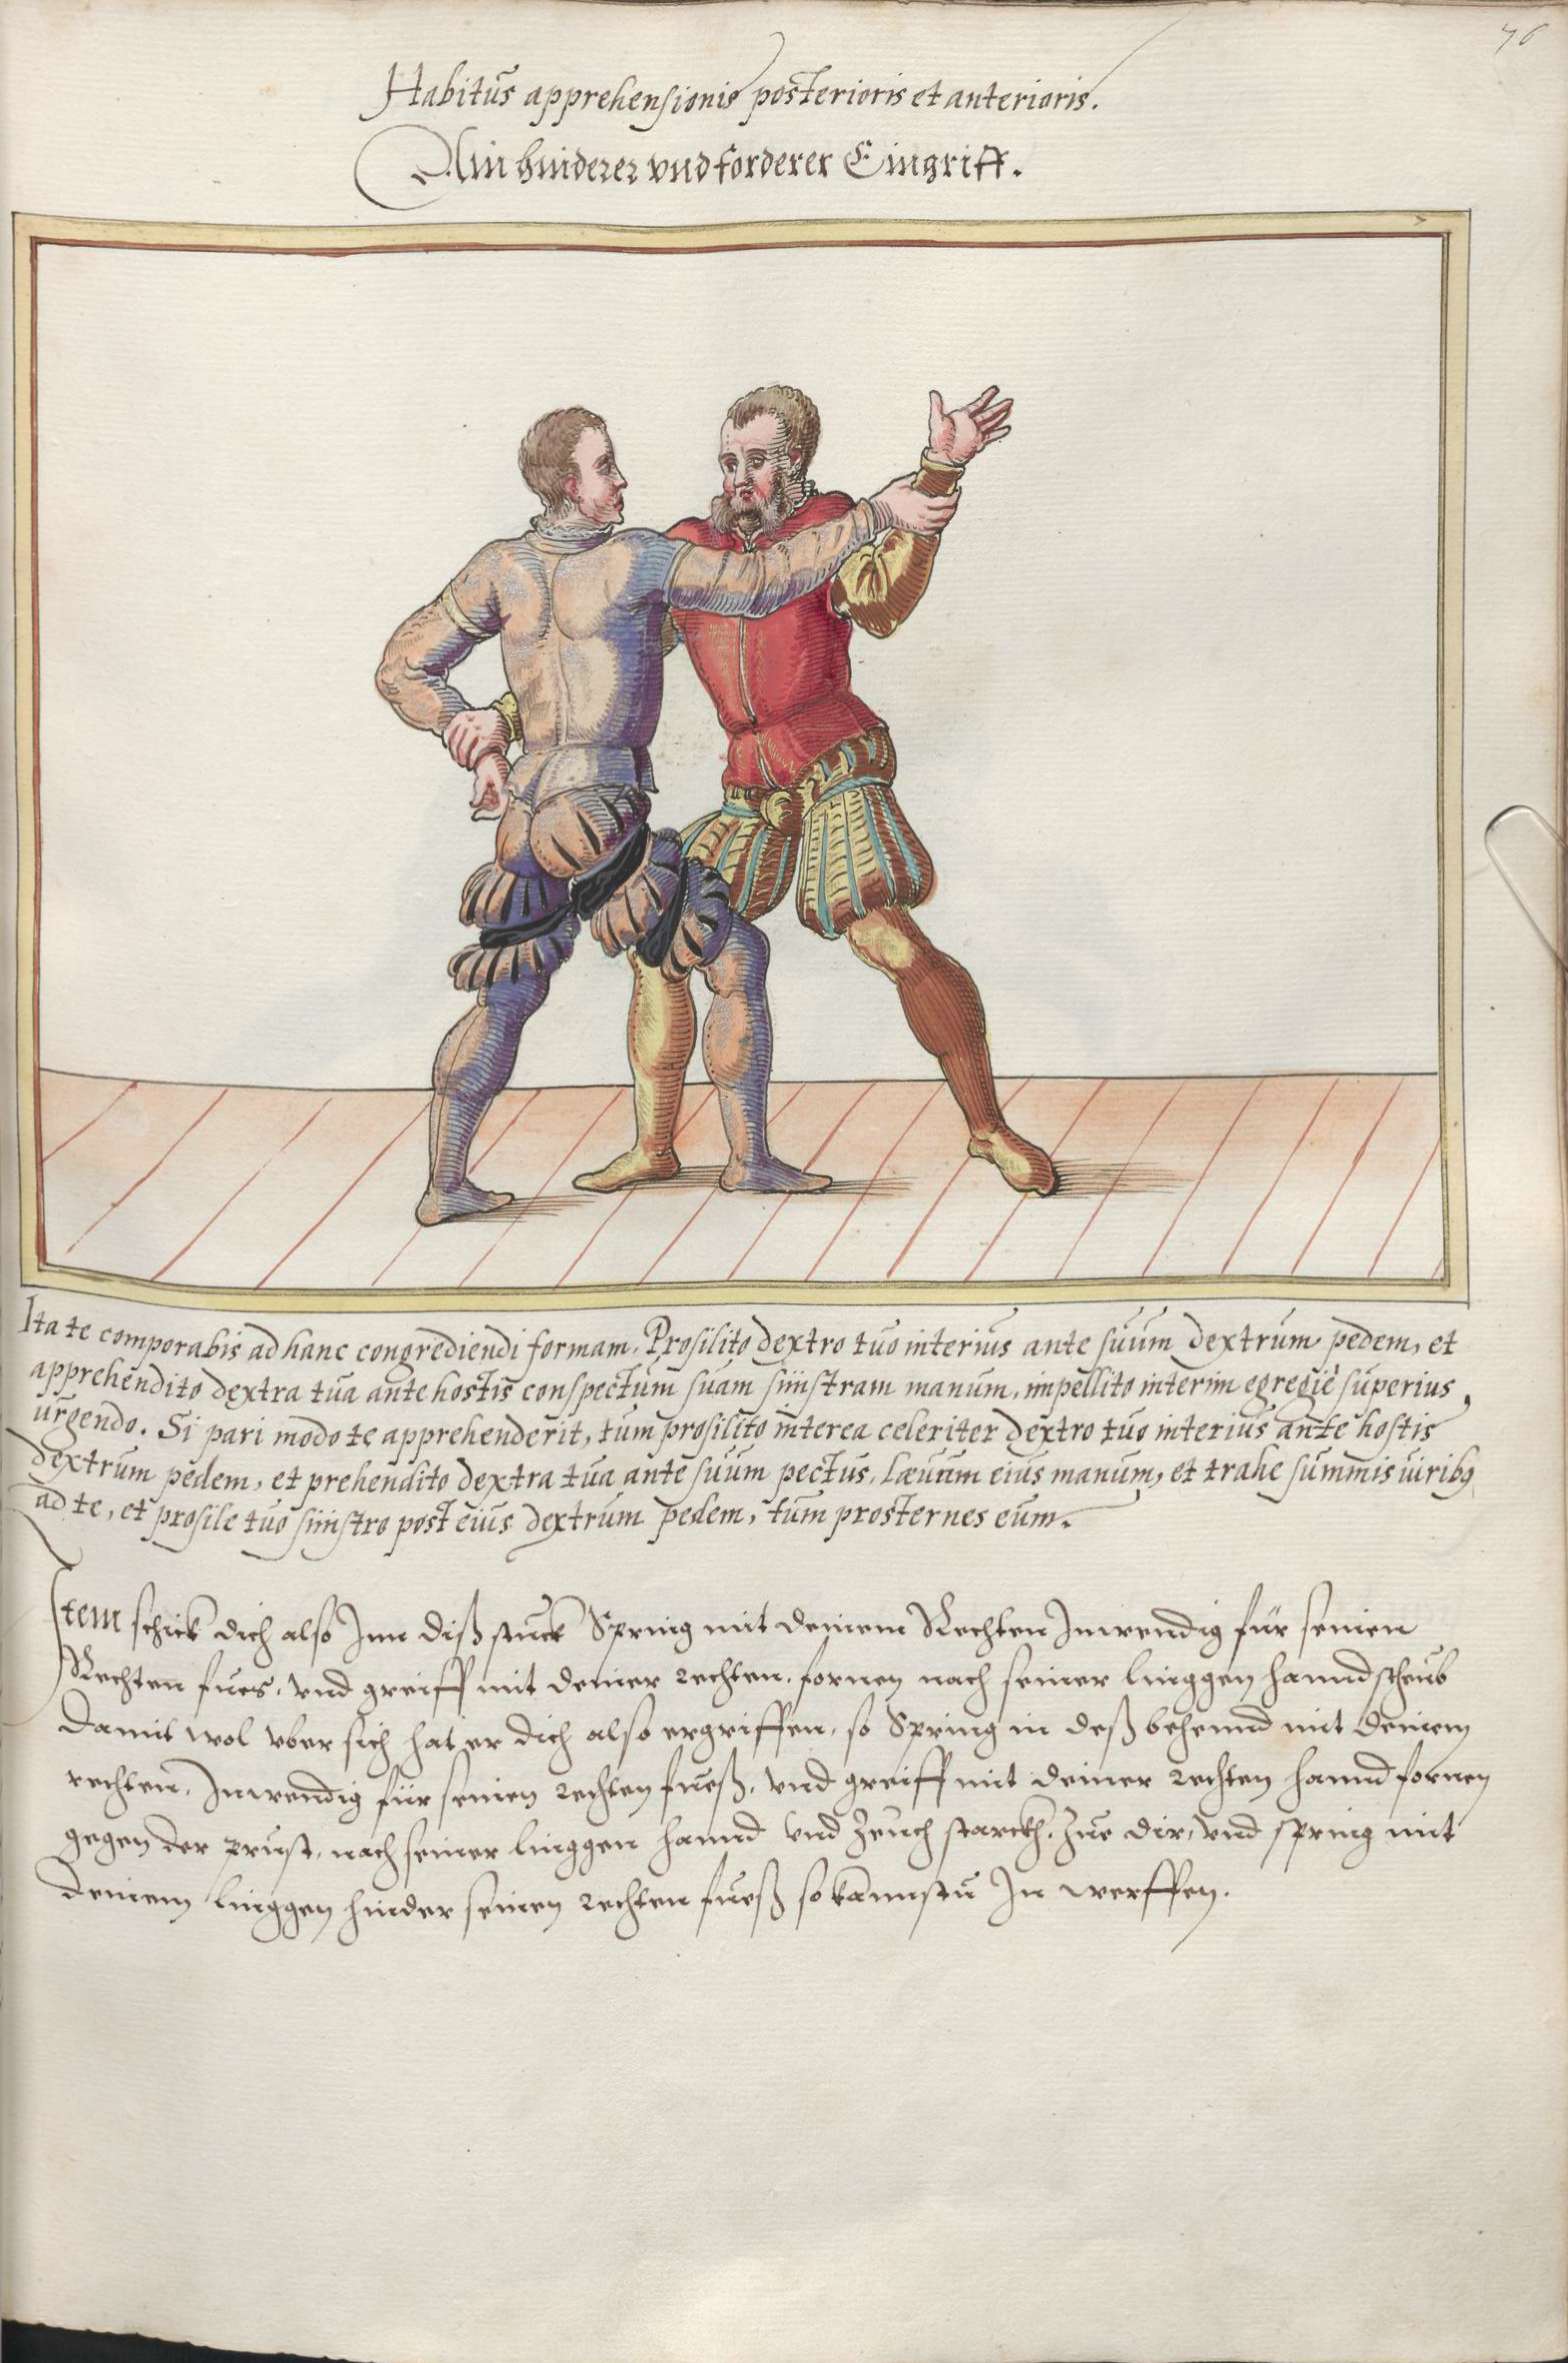 76
Habitus apprehensionis posterioris et anterioris.
Ain hinderer vnd forderer Eingriff.
Ita te comporabis ad hanc congrediendi formam. Prosilito dextro tuo interius ante suum dextrum pedem, et
apprehendito dextra tua ante hostis conspectum suam sinistram manum, impellito interim egregiè superius
urgendo. Si pari modo te apprehenderit, tum prosilito interea celeriter dextro tuo interius ante hostis
dextrum pedem, et prehendito dextra tua ante suum pectus, Lævam eius manum, et trahe summis uiribꝫ
ad te, et prosile tuo sinistro post eius dextrum pedem, tum prosternes eum.
Item schickh dich also Jnn diß stuckh Spring mit deinem Rechten Jnwendig für seinen
Rechten fues, vnd greiff mit deiner rechten, fornen nach seiner linggen hannd scheub
damit wol vber sich hat er dich also ergriffen, so Spring in deß behennd mit deinem
rechten, Jnwendig für seinen rechten fueß, vnd greiff mit deiner rechten hannd fornen
gegen der prust, nach seiner linggen hannd vnd zeuch starckh, zue dir, vnd spring mit
deinem linggen hinder seinen rechten fueß so kannstu Jn werffen.